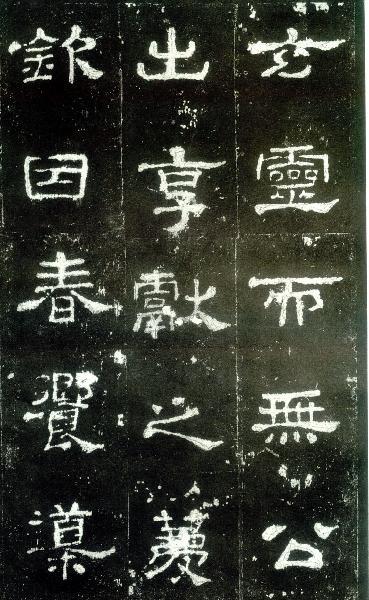 玄靈而無公
出享獻之薦
欽因春饗導